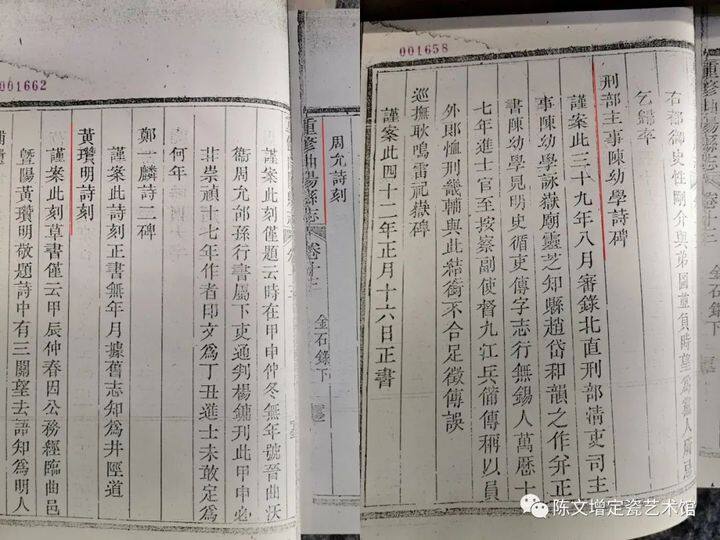 001658
右都御史性剛介與弟國並負時望為當人所忌
乞歸卒
刑部主事陳幼學詩碑
謹案此三十九年八月審錄北直刑部清吏司主
事陳幼學詠嶽廟靈芝知縣趙岱和韻之作幷正
書陳幼學見明史循吏傳字志行無錫人萬歷十
七年進士官至按察副使督九江兵備傳稱以員
外郎恤刑畿輔與此結銜不合足徵傳誤
巡撫耿鳴雷祀嶽碑
謹案此四十二年正月十六日正書
周允詩刻
重修曲陽縣志
卷十三
金石錄下
謹案此刻僅題云時在甲申仲冬無年號晉曲沃
衞周允部孫行書屬下吏通判楊鏞刊此甲申必
非崇禎十七年作者印文爲丁丑進士未敢定爲
何年
鄭一麟詩二碑
謹案此詩刻正書無年月據舊志知爲井陘道
黃瓚明詩刻
謹案此刻草書僅云甲辰仲春因公務經臨曲邑
曁陽黃瓚明敬題詩中有三關望去語知爲明人
001662
重修曲陽縣志
卷十三
金石錄下
陈文增定瓷艺术馆